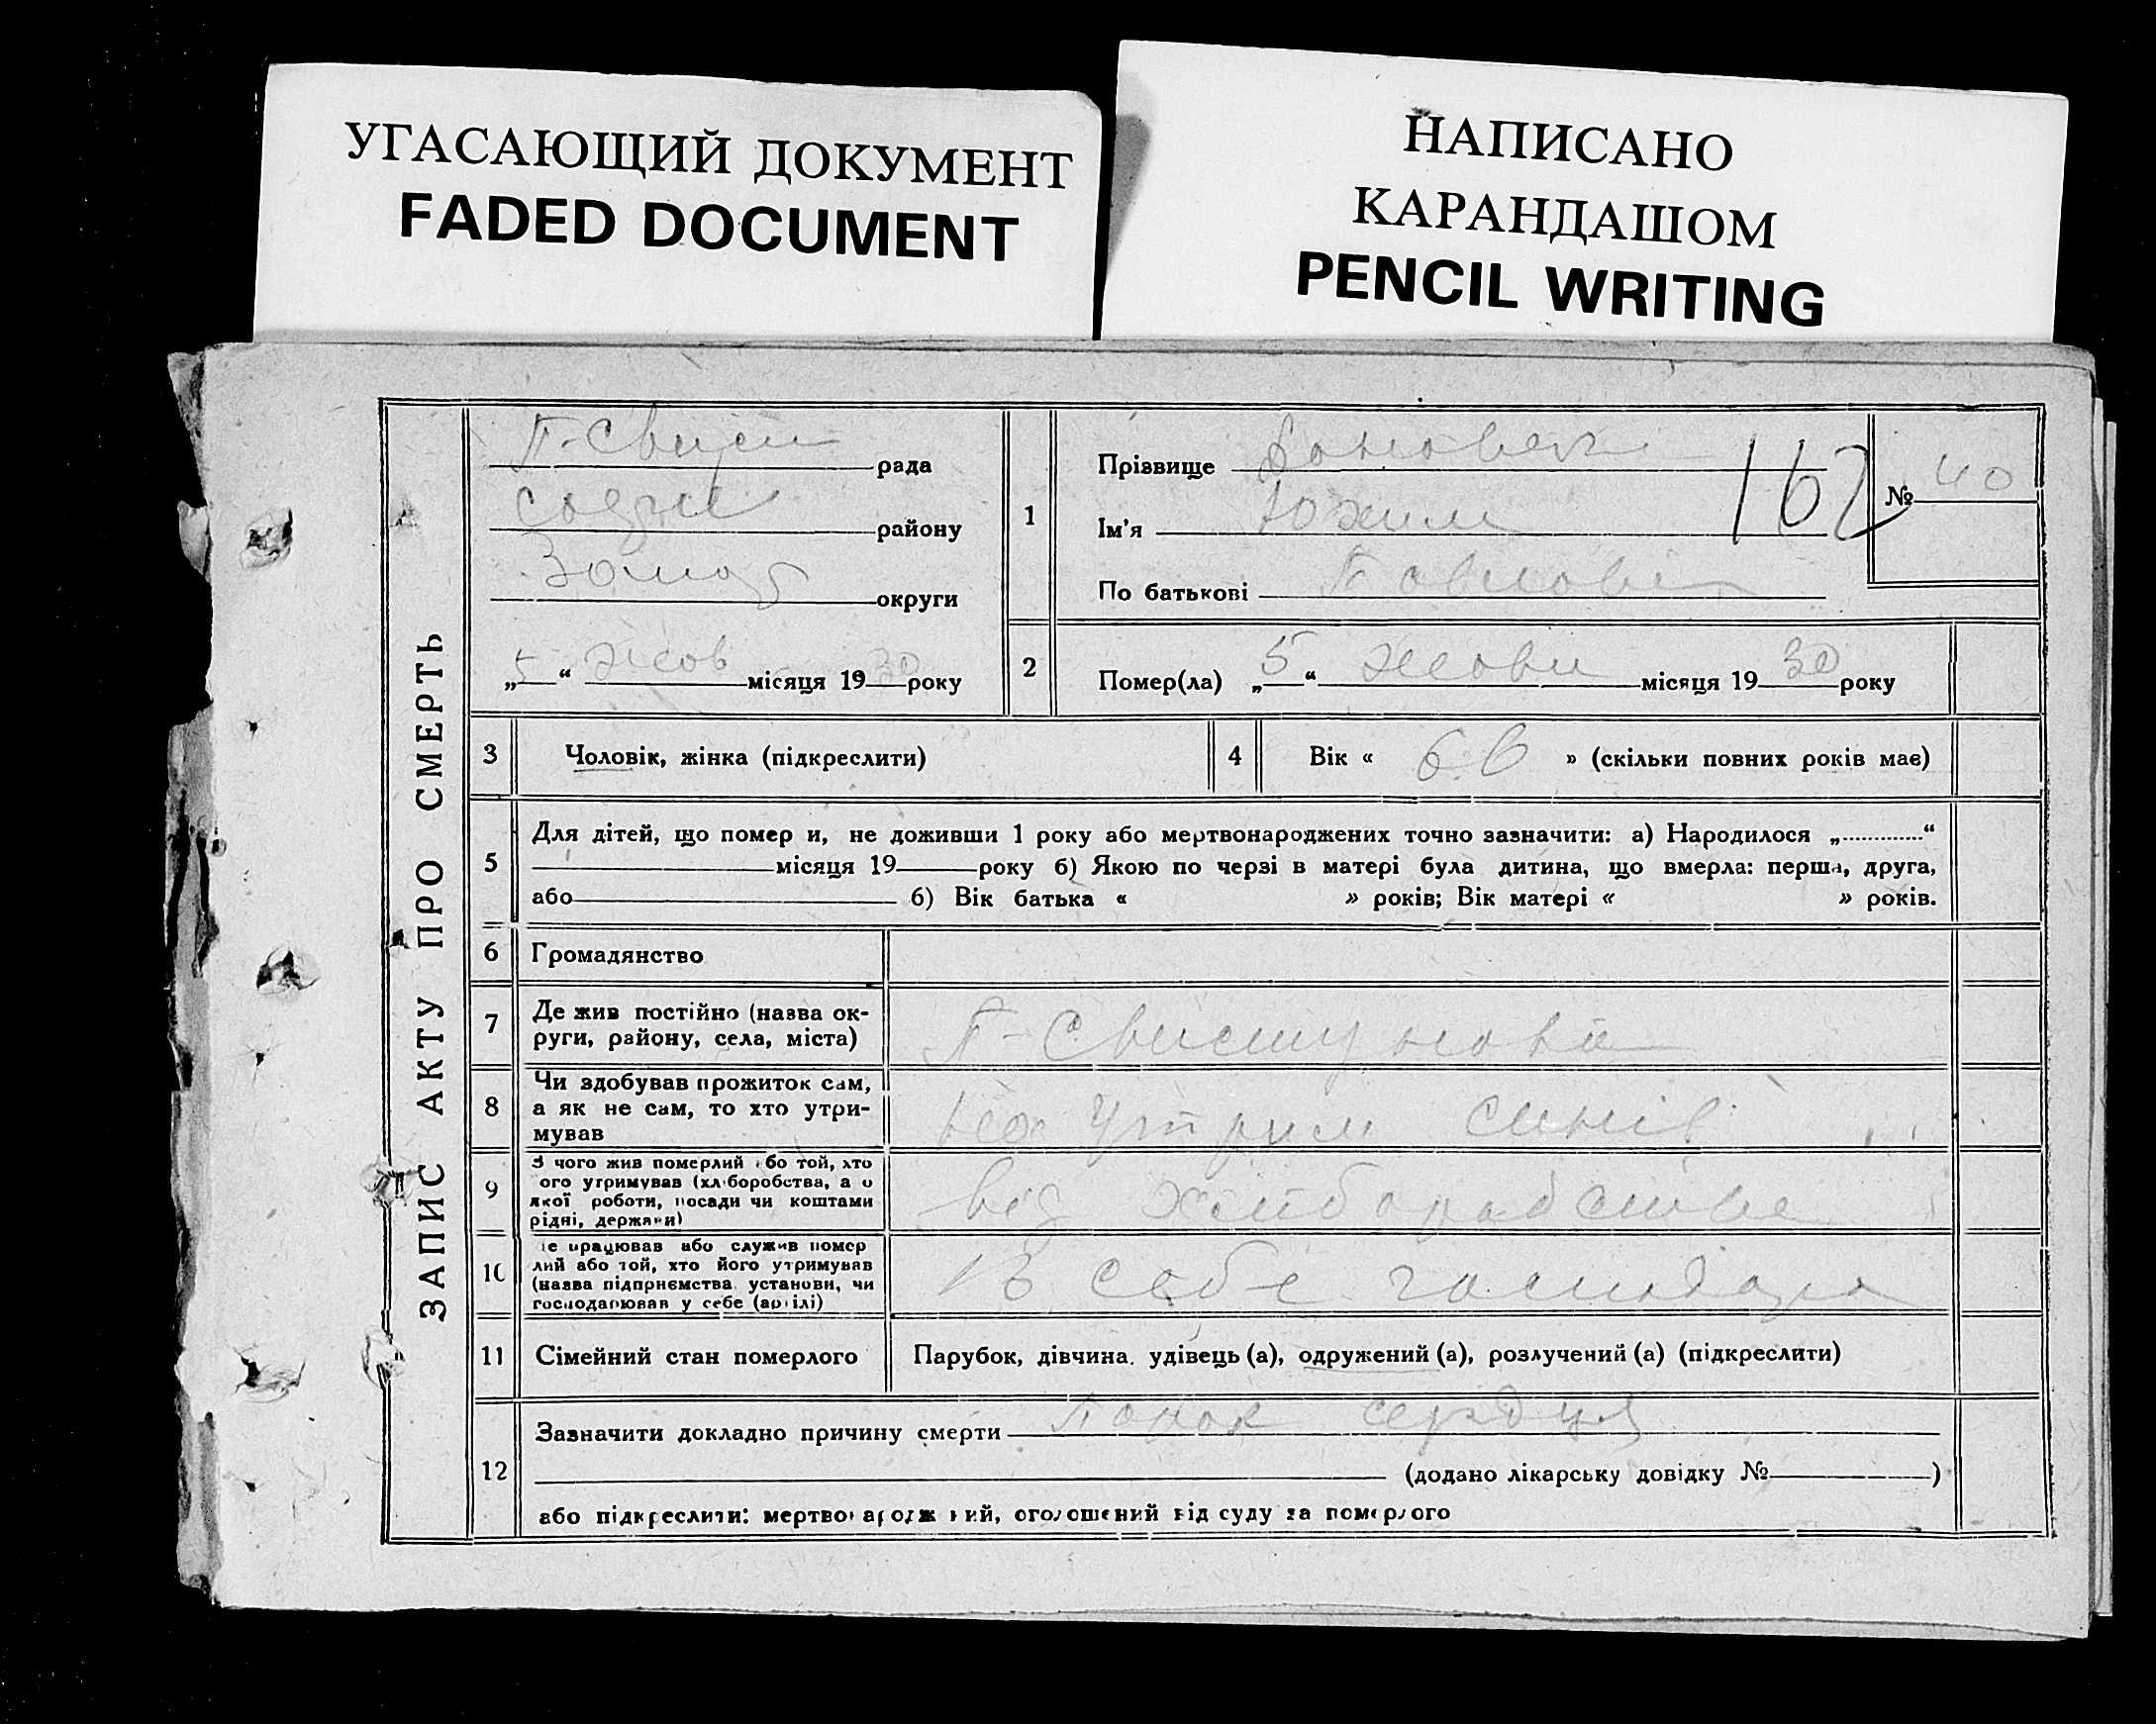 УГАСАЮЩИЙ ДОКУМЕНТ
FADED DOCUMENT
НАПИСАНО
КАРАНДАШОМ
PENCIL WRITING
ЗАПИС АКТУ ПРО СМЕРТЬ
рада
району
округи
„5“ жов місяця 1930 року
1
Прізвище
Ім'я Юхим
По батькові Павлові
162
№ 40
2
Помер(ла) „5“ жовт місяця 1930 року
3
Чоловік, жінка (підкреслити)
4
Вік « 66 » (скільки повних років має)
5
Для дітей, що помер и, не доживши 1 року або мертвонароджених точно зазначити: а) Народилося „............“
місяця 19 року б) Якою по черзі в матері була дитина, що вмерла: перша, друга,
або б) Вік батька « » років; Вік матері « » років.
6
Громадянство
7
Де жив постійно (назва ок-
руги, району, села, міста)
П-Свистунова
8
Чи здобував прожиток сам,
а як не сам, то хто утри-
мував
утрим синів
9
З чого жив померлий або той, хто
ого утримував (хліборобства, а о
якої роботи, посади чи коштами
рідні, держави)
від хліборобства
10
е працював або служив помер
лий або той, хто його утримував
(назва підприємства, установи, чи
господарював у себе (артілі)
в себе господар
11
Сімейний стан померлого
Парубок, дівчина, удівець (а), одружений (а), розлучений (а) (підкреслити)
12
Зазначити докладно причину смерти сердця
(додано лікарську довідку № )
або підкреслити: мертвонароджений, оголошений від суду за померлого